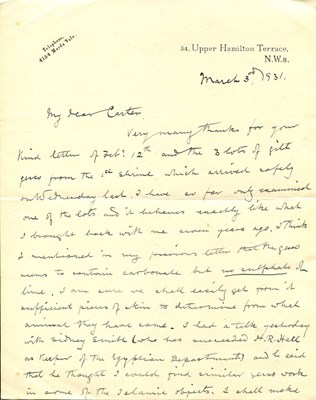 Telephone,
4134 Maida Vale.
34, Upper Hamilton Terrace,
N.W.8.
March 3rd 1931.
My dear Carter,
Very many thanks for your
kind letter of Feb. 12th and the 3 lots of gilt
gesso from the 1st Shrine which arrived safely
on Wednesday last. I have so far only examined
one of the lots and it behaves exactly like what
I brought back with me seven years ago. I think
I mentioned in my previous letter that the gesso
seems to contain carbonate but no sulphate of
lime. I am sure we shall easily get from it
sufficient pieces of skin to determine from what
animal they have come. I had a talk yesterday
with Sidney Smith (who has succeeded H.R. Hall
as Keeper of the Egyptian Department) and he said
that he thought I could find similar gesso work
in some of the Islamic objects. I shall make